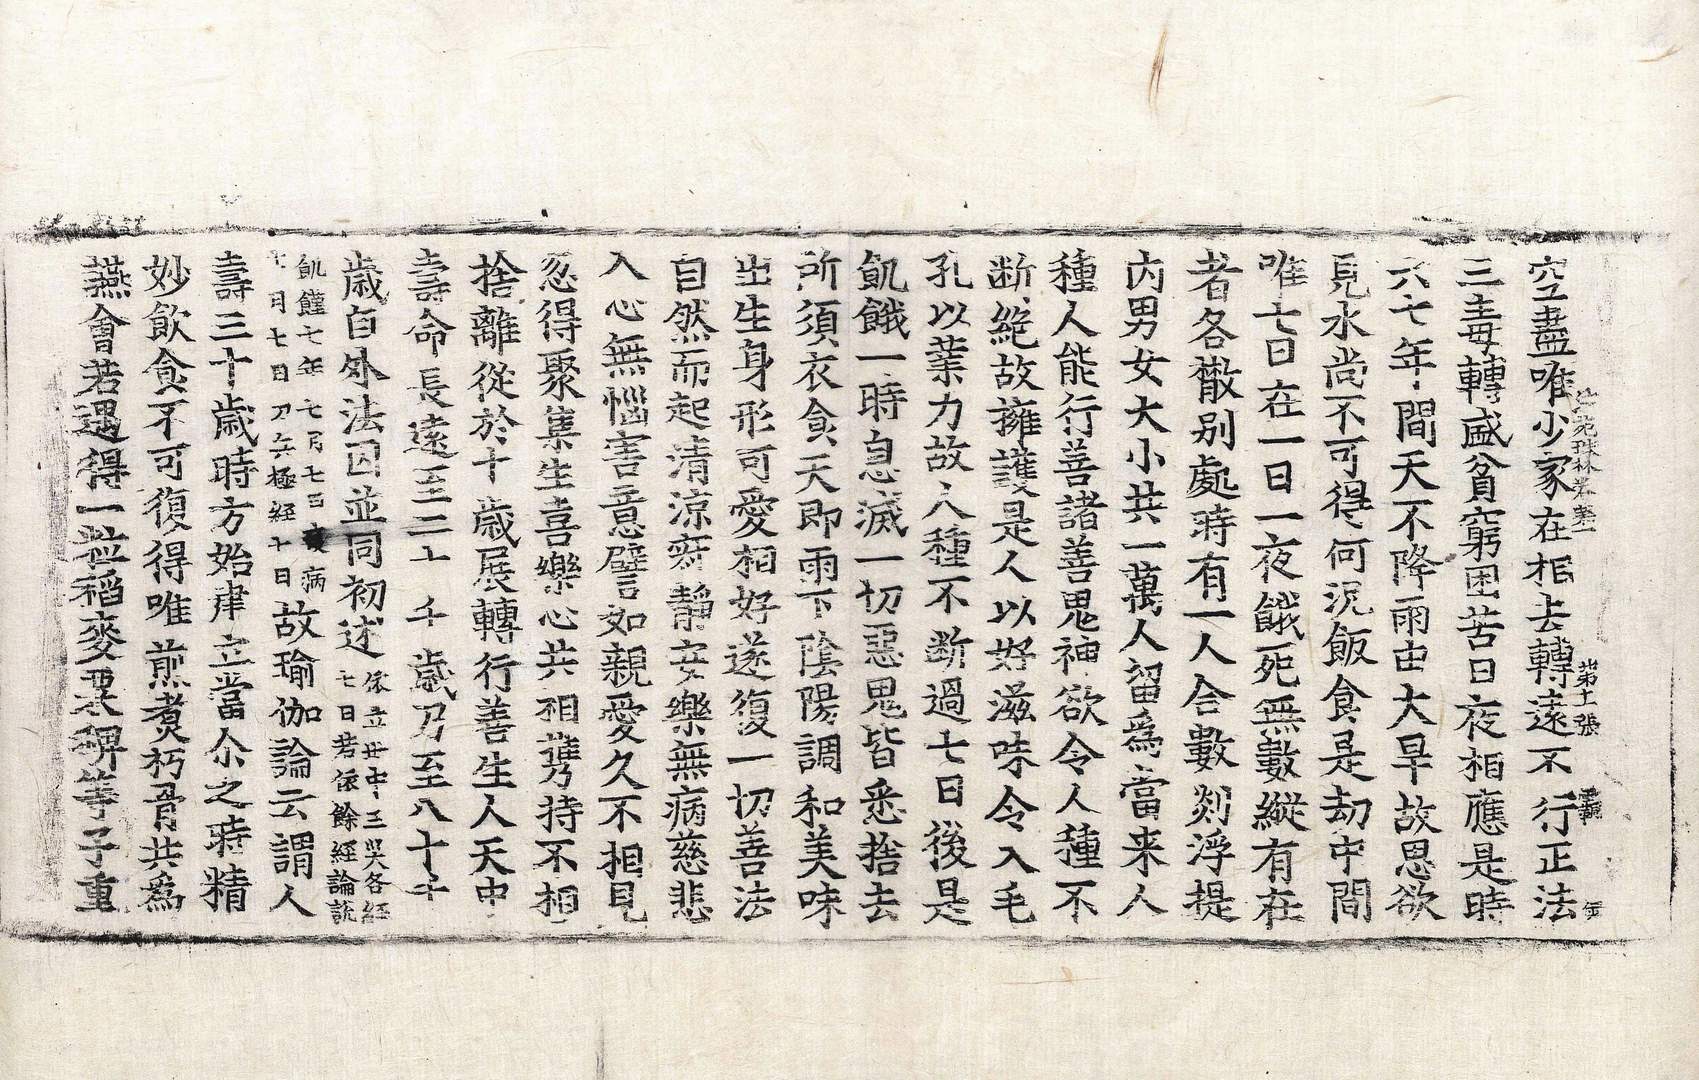 法苑珠林卷第一 第十張
空盡唯少家在相去轉遠不行正法
三毒轉盛貧窮困苦日夜相應是時
六七年間天不降雨由大旱故思欲
見水尚不可得何況飯食是劫中間
唯七日在一日一夜餓死無數縱有在
者各散別處時有一人合數剡浮提
內男女大小共一萬人留爲當来人
種人能行善諸善鬼神欲令人種不
断絶故擁護是人以好滋味令入毛
孔以業力故人種不断過七日後是
飢餓一時息滅一切惡鬼皆悉捨去
所須衣食天即雨下陰陽調和美味
出生身形可愛相好遂復一切善法
自然而起清涼寂靜安樂無病慈悲
入心無惱害意譬如親愛久不相見
忽得聚集生喜樂心共相攜持不相
捨離從於十歲展轉行善生人天中
壽命長遠至二十千歲乃至八十千
歲自外法因並同初述依立世中三災各經
七日若依餘經論說
飢饉七年七月七日疫病
七月七日刀兵極經七日故瑜伽論云謂人
壽三十歲時方始建立當尒之時精
妙飲食不可復得唯煎煮朽骨共爲
燕會若遇得一粒稻麥粟稗等子重